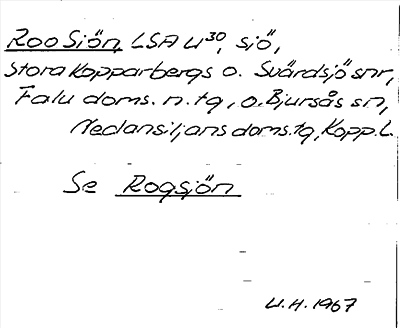 Roo Siön, LSA U30, sjö,
Stora Kopparbergs o. Svärdsjö snr,
Falu doms. n. tg, o. Bjursås sn,
Nedansiljans doms. tg, Kopp. L.
Se Rogsjön
U.H. 1967